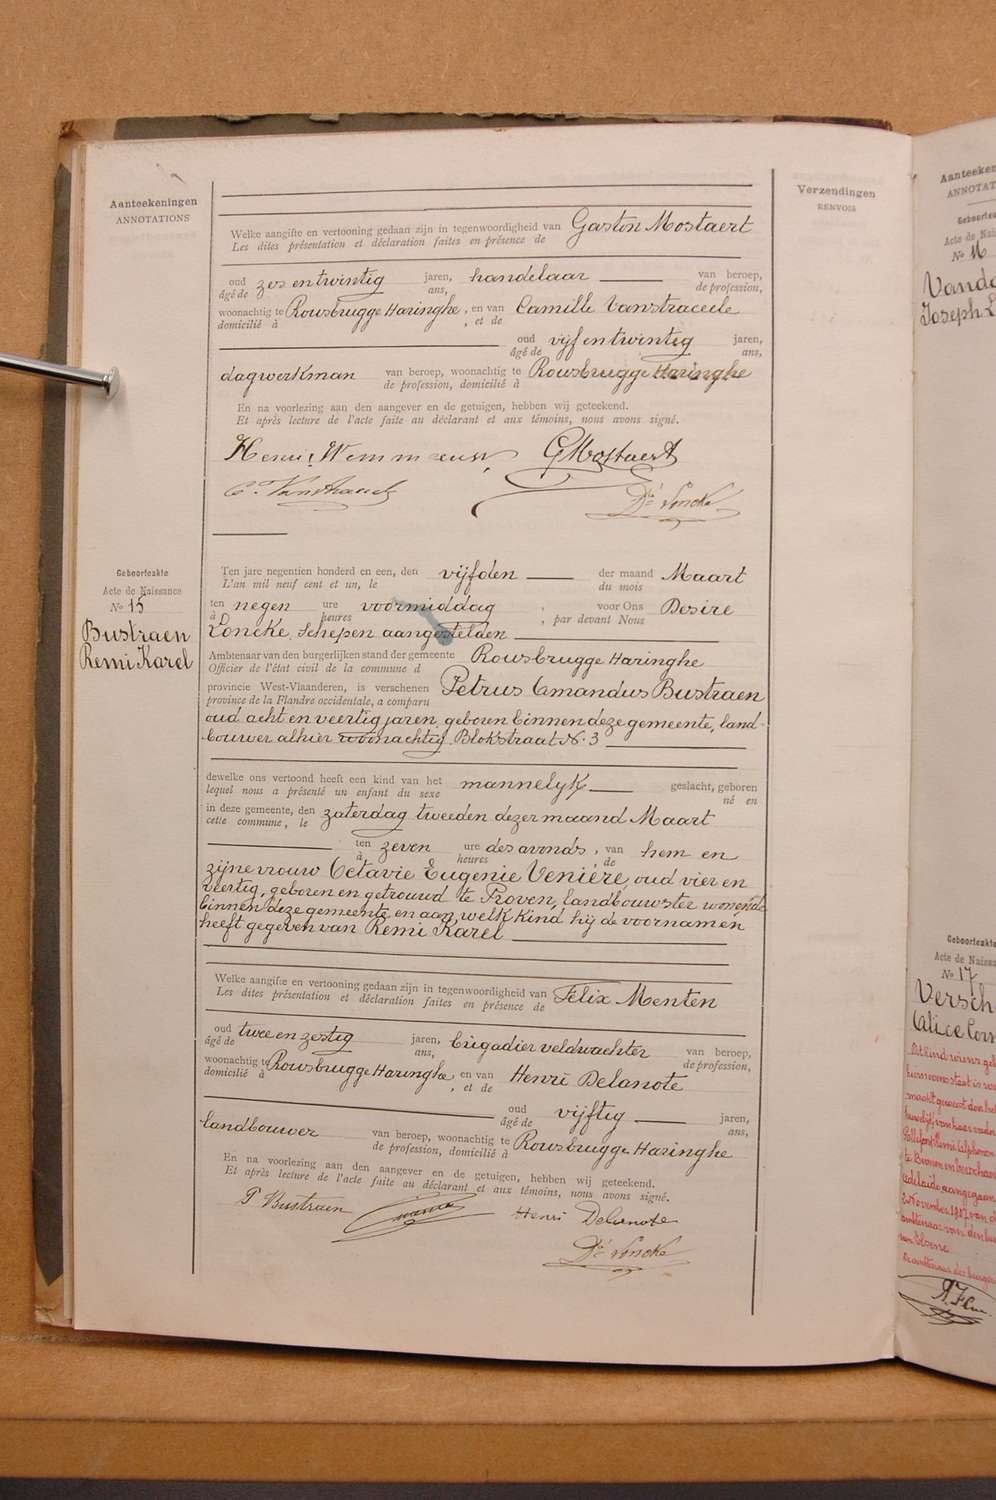 Aanteekeningen
ANNOTATIONS
Verzendingen
RENVOIS
Welke aangifte en vertooning gedaan zijn in tegenwoordigheid van Gaston Mostaert
Les dites présentation et déclaration faites en présence de
oud zes en twintig jaren, handelaar van beroep,
âgé de ans, de profession,
woonachtig te Rousbrugge Haringhe, en van Camille Vanstraceele
domicilié à , et de
oud vijf en twintig jaren,
âgé de ans,
dagwerkman van beroep, woonachtig te Rousbrugge Haringhe
de profession, domicilié à
En na voorlezing aan den aangever en de getuigen, hebben wij geteekend.
Et après lecture de l'acte faite au déclarant et aux témoins, nous avons signé.
Henri G Mostaert
C. Dé Loncke
Geboorteakte
Acte de Naissance
No 15
Bustraen
Remi Karel
Ten jare negentien honderd en een, den vijfden der maand Maart
L'an mil neuf cent et un, le du mois
ten negen ure voormiddag , voor Ons Desire
à heures , par devant Nous
Loncke, Schepen aangestelden
Ambtenaar van den burgerlijken stand der gemeente Rousbrugge Haringhe
Officier de l'état civil de la commune d
provincie West-Vlaanderen, is verschenen Petrus Amandus Bustraen
province de la Flandre occidentale, a comparu
oud acht en veertig jaren, geboren binnen deze gemeente, land-
bouwer alhier woonachtig Blokstraat N. 3
dewelke ons vertoond heeft een kind van het mannelyk geslacht, geboren
lequel nous a présenté un enfant du sexe né en
in deze gemeente, den zaterdag tweeden dezer maand Maart
cette commune, le
ten zeven ure des avonds, van hem en
à heures , de
zijne vrouw Octavie Eugenie Venière, oud vier en
veertig, geboren en getrouwd te Proven, landbouwster wonende
binnen deze gemeente en aan welk kind hij de voornamen
heeft gegeven van Remi Karel
Welke aangifte en vertooning gedaan zijn in tegenwoordigheid van Felix Menten
Les dites présentation et déclaration faites en présence de
oud twee en zestig jaren, brigadier veldwachter van beroep,
âgé de ans, de profession,
woonachtig te Rousbrugge Haringhe, en van Henri Delanote
domicilié à , et de
oud vijftig jaren,
âgé de ans,
landbouwer van beroep, woonachtig te Rousbrugge Haringhe
de profession, domicilié à
En na voorlezing aan den aangever en de getuigen, hebben wij geteekend.
Et après lecture de l'acte faite au déclarant et aux témoins, nous avons signé.
P Bustraen Henri Delanote
Dé Loncke
Aanteeken
ANNOTAT
Geboorte
Acte de Nai
No 16
Vand
Joseph L
Geboorteakte
Acte de Naissa
No 17
Versch
Alice Cor